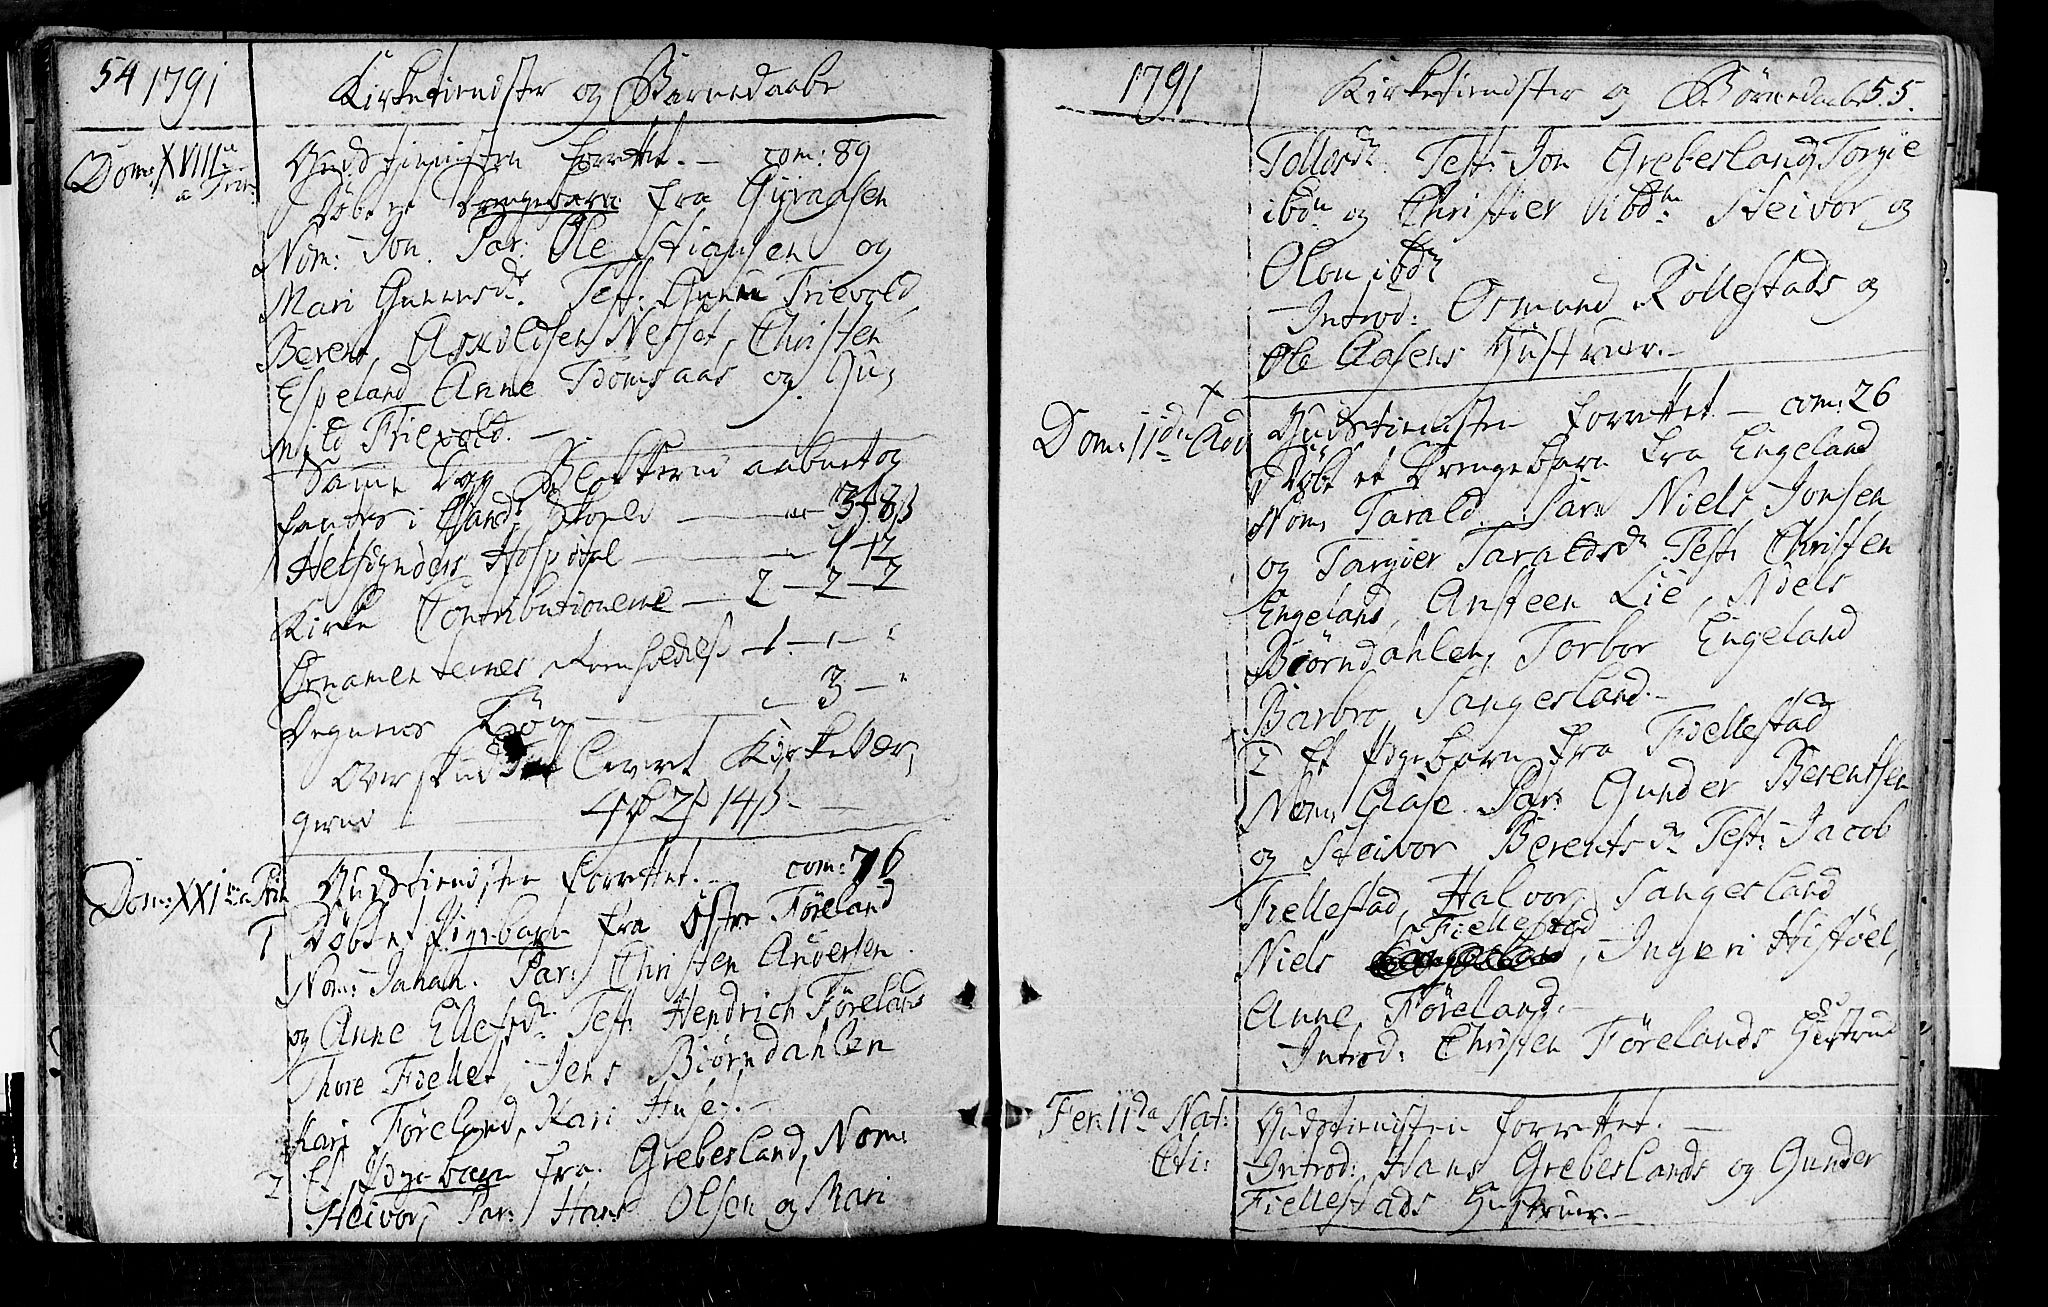 54 1791
Kirketienister og Barnedaabe
Dom: XVIII a Trin:
Gudstienisten forrettet. — com: 89
Døbt et Drengebarn fra Gyvaasen
Nom: Jon. Par: Ole Stiansen og
Mari Gunersdr. Test: Gunu Trievold,
Berent Askoldsen Nesset, Christen
Espeland Anne Tromsaas og Gu-
nild Trievold. —
Samme Dag Blokkerne aabnet og
fantes i Skole — 3 8 ß
Helsignders Hospital — 1 — 12
Kirke Contributionerne — 2 — 2 — 2
Ornamenternes — 1 — " — "
Degnens Løn — 3 — "
Overskud Leveret Kirkevær-
gerne 4 2 14 ß —
Dom: XXI a Trin
Gudstienisten forrettet. — com: 76
1 Døbt et Pigebarn fra Østre Föreland
Nom: Johan. Par: Christen Andersen
og Anne Ellefsdr. Test: Hendrich Förelands
Thore Fiellet, Jens Biörndahlen
Kari Föreland, Kari Husej. —
2 Et Pigebarn fra Grebesland, Nom:
Steivor, Par: Hans Olsen og Mari
1791
Kirketienister og Börnedaabe 55.
Tollesdr. Test: Jon Grebesland, Torgie
ibdm og Christier ibdm Steivor og
Olou ibdm
Introd: Osmund Rollestads og
Ole Aasens Hustruer. —
Dom: IIdn Adv
Gudstienisten forrettet. — com: 26
1 Døbt et Drengebarn fra Engeland
Nom: Tarald. Par: Niels Jonsen
og Targier Taraldsdr. Test: Christen
Engeland, Ansteen Lie, Niels
Biörndahlen, Torbor Engeland
Barbro Sangesland. —
2 Et Pigebarn fra Fiellestad
Nom: Aase. Par: Gunder Berentsen
og Steivor Berentsdr. Test: Jacob
Fiellestad, Halvor Sangesland
Fiellestad
Niels, Ingeri Histöel,
Anne Föreland. —
Introd: Christen Förelands Hustrue
Fer: IIda Nat:
Chri:
Gudstienisten forrettet. —
Introd: Hans Grebeslands og Gunder
Fiellestads Hustruer. —